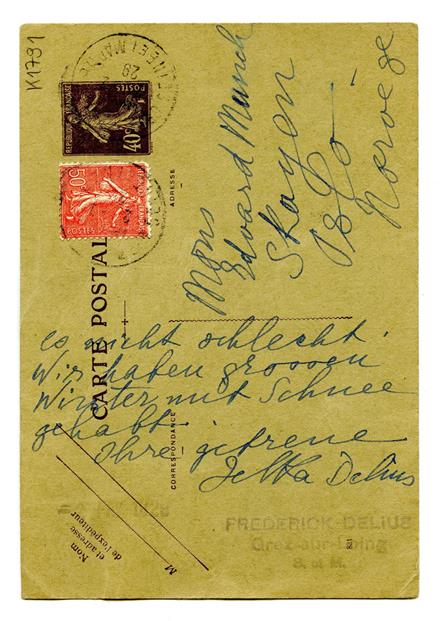 K1791
REPUBLIQUE FRANÇAISE
POSTES
40c
05
POSTES
29
CARTE POSTALE
ADRESSE
CORRESPONDANCE
Mons
Edvard Munch
Skøyen
Oslo
Norvege
es nicht schlecht.
Wir haben grossen
Winter mit Schnee
gehabt.
Ihre getreue
Jelka Delius
Nom
et adresse
de l'expéditeur
M
FREDERICK DELIUS
Grez-sur-Loing
S. et M.